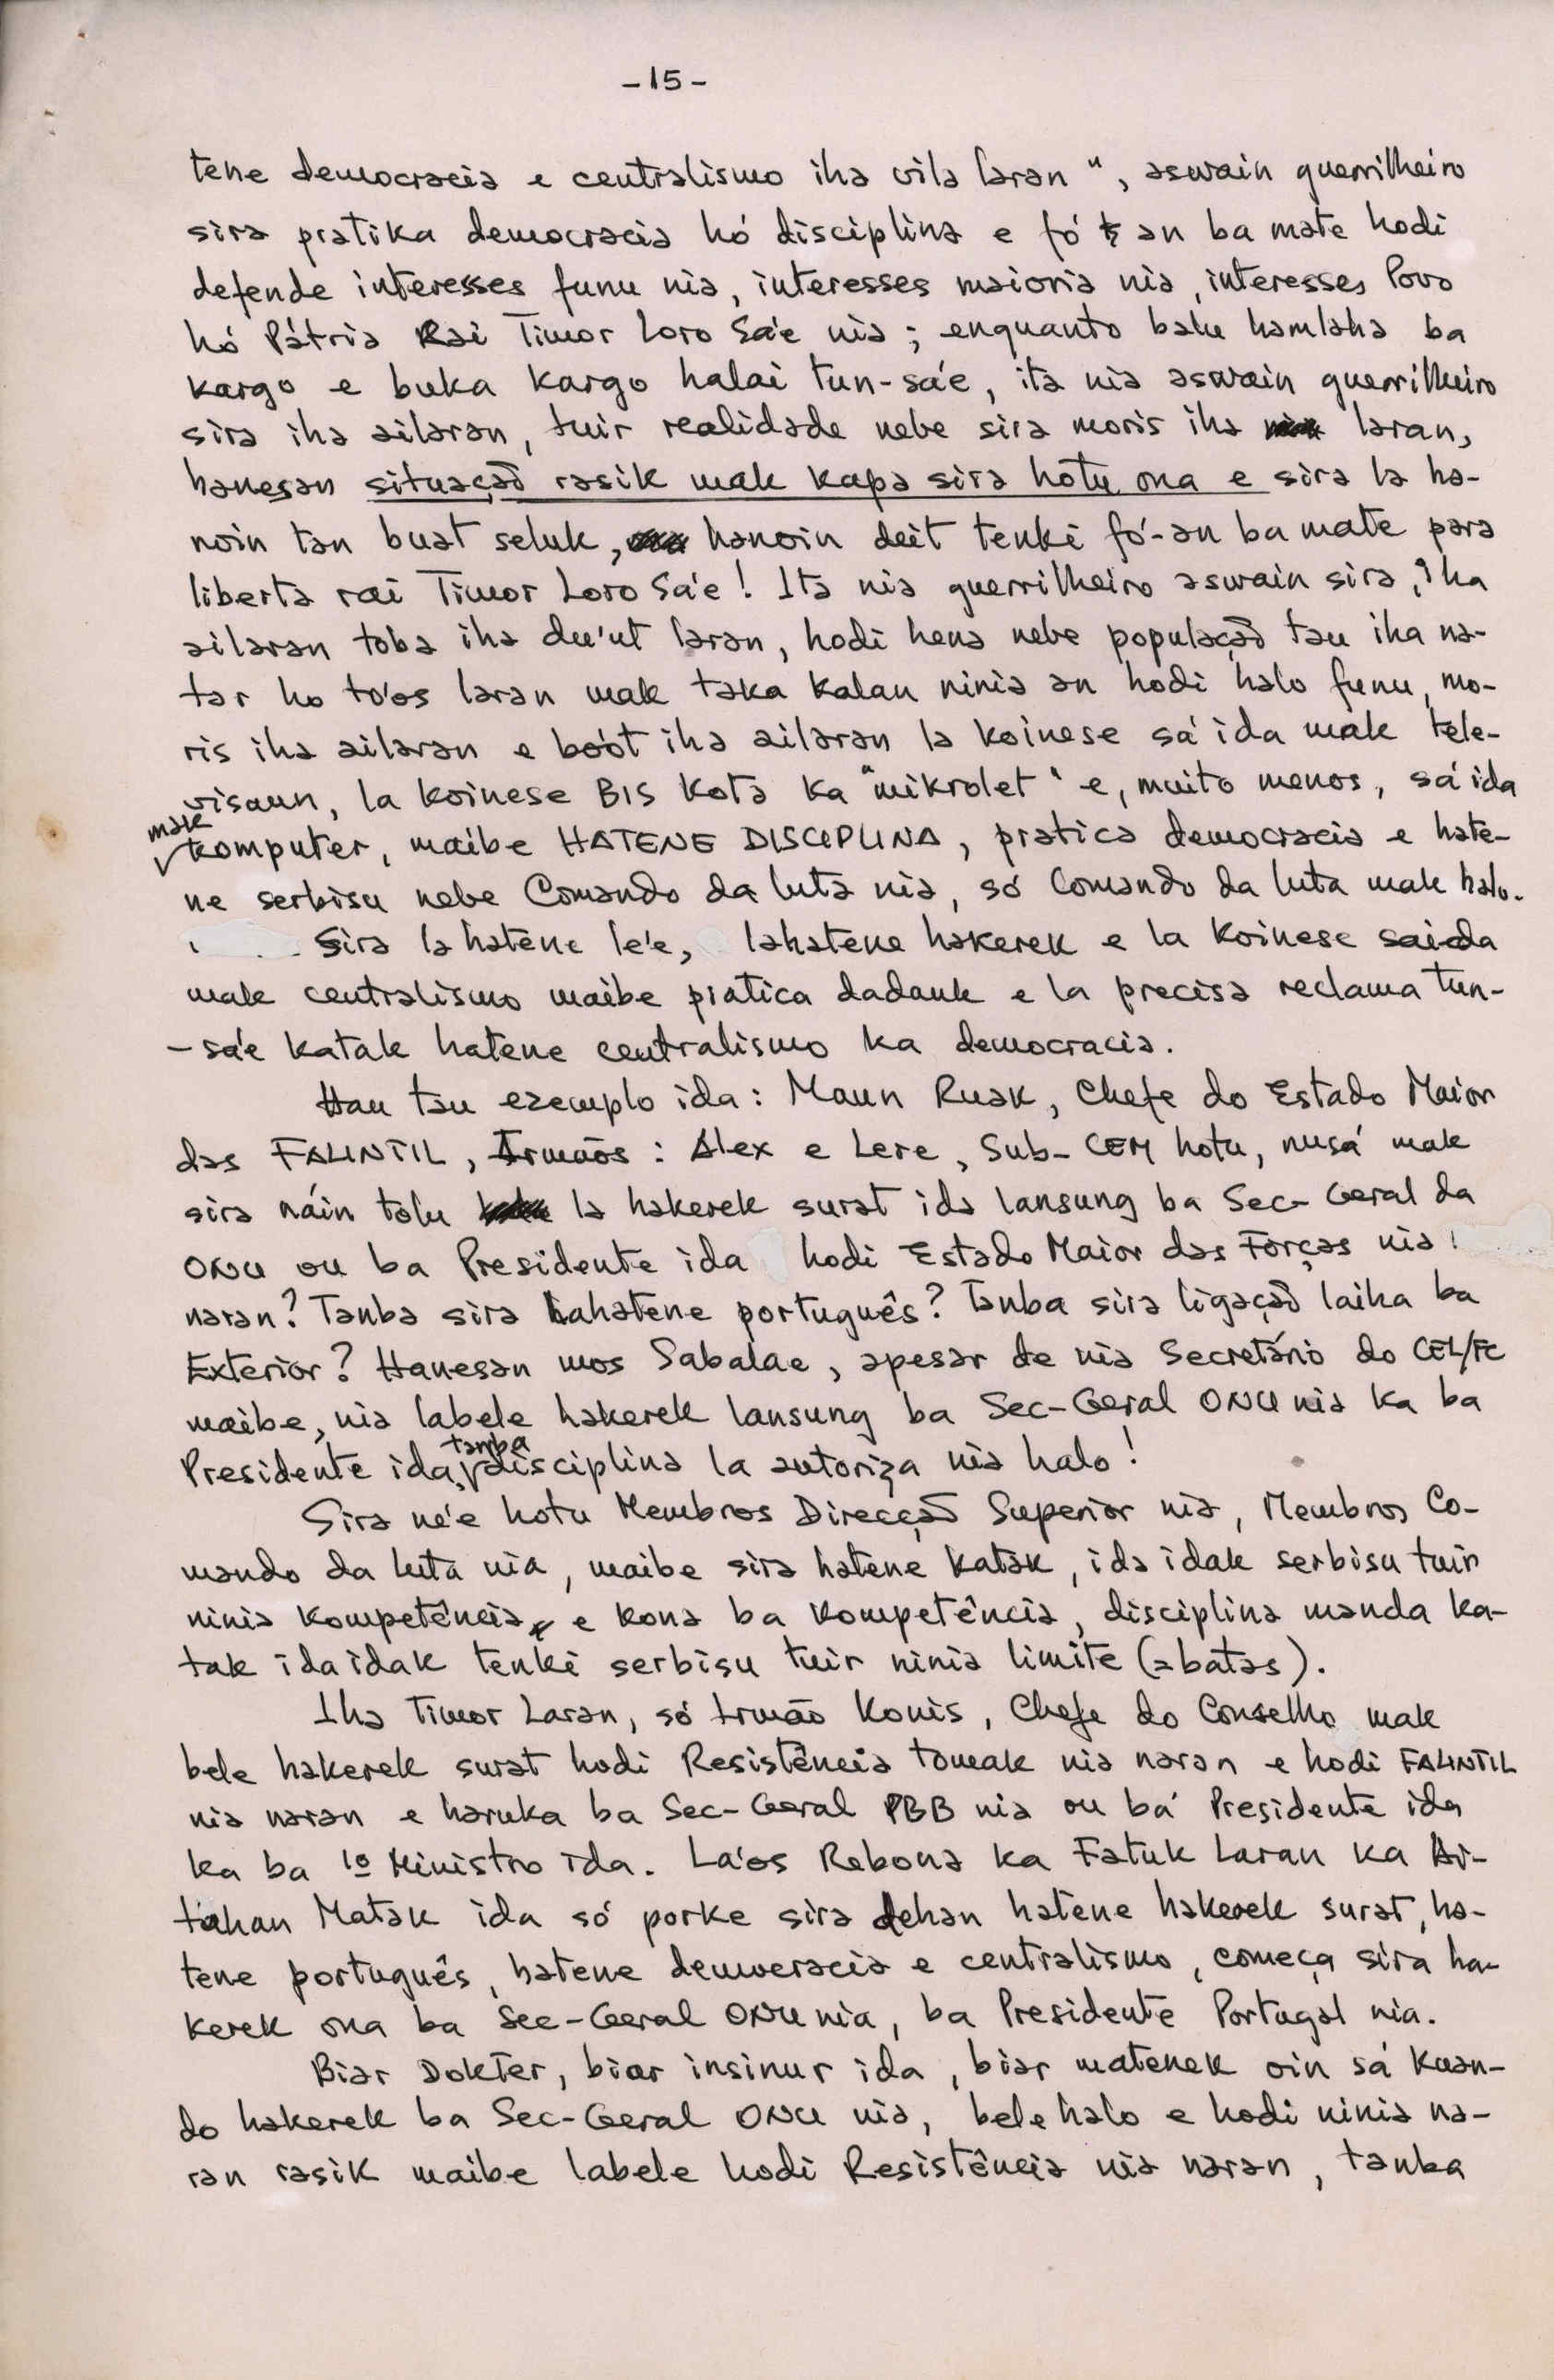 -15-
tene democracia e centralismo iha vila laran", aswain guerrilheiro
sira pratika democracia hó disciplina e fó an ba mate hodi
defende interesses funu nia, interesses maioria nia, interesses Povo
hó Pátria Rai Timor Loro Sa'e nia; enquanto balu hamlaha ba
kargo e buka kargo halai tun-sa'e, ita nia aswain guerrilheiro
sira iha ailaran, tuir realidade nebe sira moris iha laran,
hanesan situação rasik mak kapa sira hotu ona e sira la ha-
noin tan buat seluk, hanoin deit tenki fó-an ba mate para
liberta rai Timor Loro Sa'e! Ita nia guerrilheiro aswain sira, iha
ailaran toba iha du'ut laran, hodi hena nebe população tau iha na-
tar ho to'os laran mak taka kalan ninia an hodi halo funu, mo-
ris iha ailaran e bo'ot iha ailaran la koinese sá ida mak tele-
visaun, la koinese BIS Kota ka "mikrolet" e, muito menos, sá ida
mak komputer, maibe HATENE DISCIPLINA, pratica democracia e hate-
ne serbisu nebe Comando da luta nia, só Comando da luta mak halo.
Sira la hatene le'e, lahatene hakerek e la koinese saida
mak centralismo maibe pratica dadauk e la precisa reclama tun-
-sa'e katak hatene centralismo ka democracia.
Hau tau exemplo ida: Maun Ruak, Chefe do Estado Maior
das FALINTIL, Irmãos: Alex e Lere, Sub-CEM hotu, nusá mak
sira náin tolu la hakerek surat ida lansung ba Sec-Geral da
ONU ou ba Presidente ida hodi Estado Maior das Forças nia
naran? Tanba sira lahatene português? Tanba sira ligação laiha ba
Exterior? Hanesan mos Sabalae, apesar de nia Secretário do CEL/FC
maibe, nia labele hakerek lansung ba Sec-Geral ONU nia ka ba
Presidente ida, tanba disciplina la autoriza nia halo!
Sira ne'e hotu Membros Direcção Superior nia, Membros Co-
mando da luta nia, maibe sira hatene katak, ida idak serbisu tuir
ninia kompetência, e kona ba kompetência, disciplina manda ka-
tak ida idak tenki serbisu tuir ninia limite (=batas).
Iha Timor Laran, só Irmão Konis, Chefe do Conselho mak
bele hakerek surat hodi Resistência tomak nia naran e hodi FALINTIL
nia naran e haruka ba Sec-Geral PBB nia ou bá Presidente ida
ka ba 1º Ministro ida. La'os Rebona ka Fatuk Laran ka Ai-
tahan Matak ida só porke sira dehan hatene hakerek surat, ha-
tene português, hatene democracia e centralismo, começa sira ha-
kerek ona ba Sec-Geral ONU nia, ba Presidente Portugal nia.
Biar Dokter, biar insinur ida, biar matenek oin sá kuan-
do hakerek ba Sec-Geral ONU nia, bele halo e hodi ninia na-
ran rasik maibe labele hodi Resistência nia naran, tanba